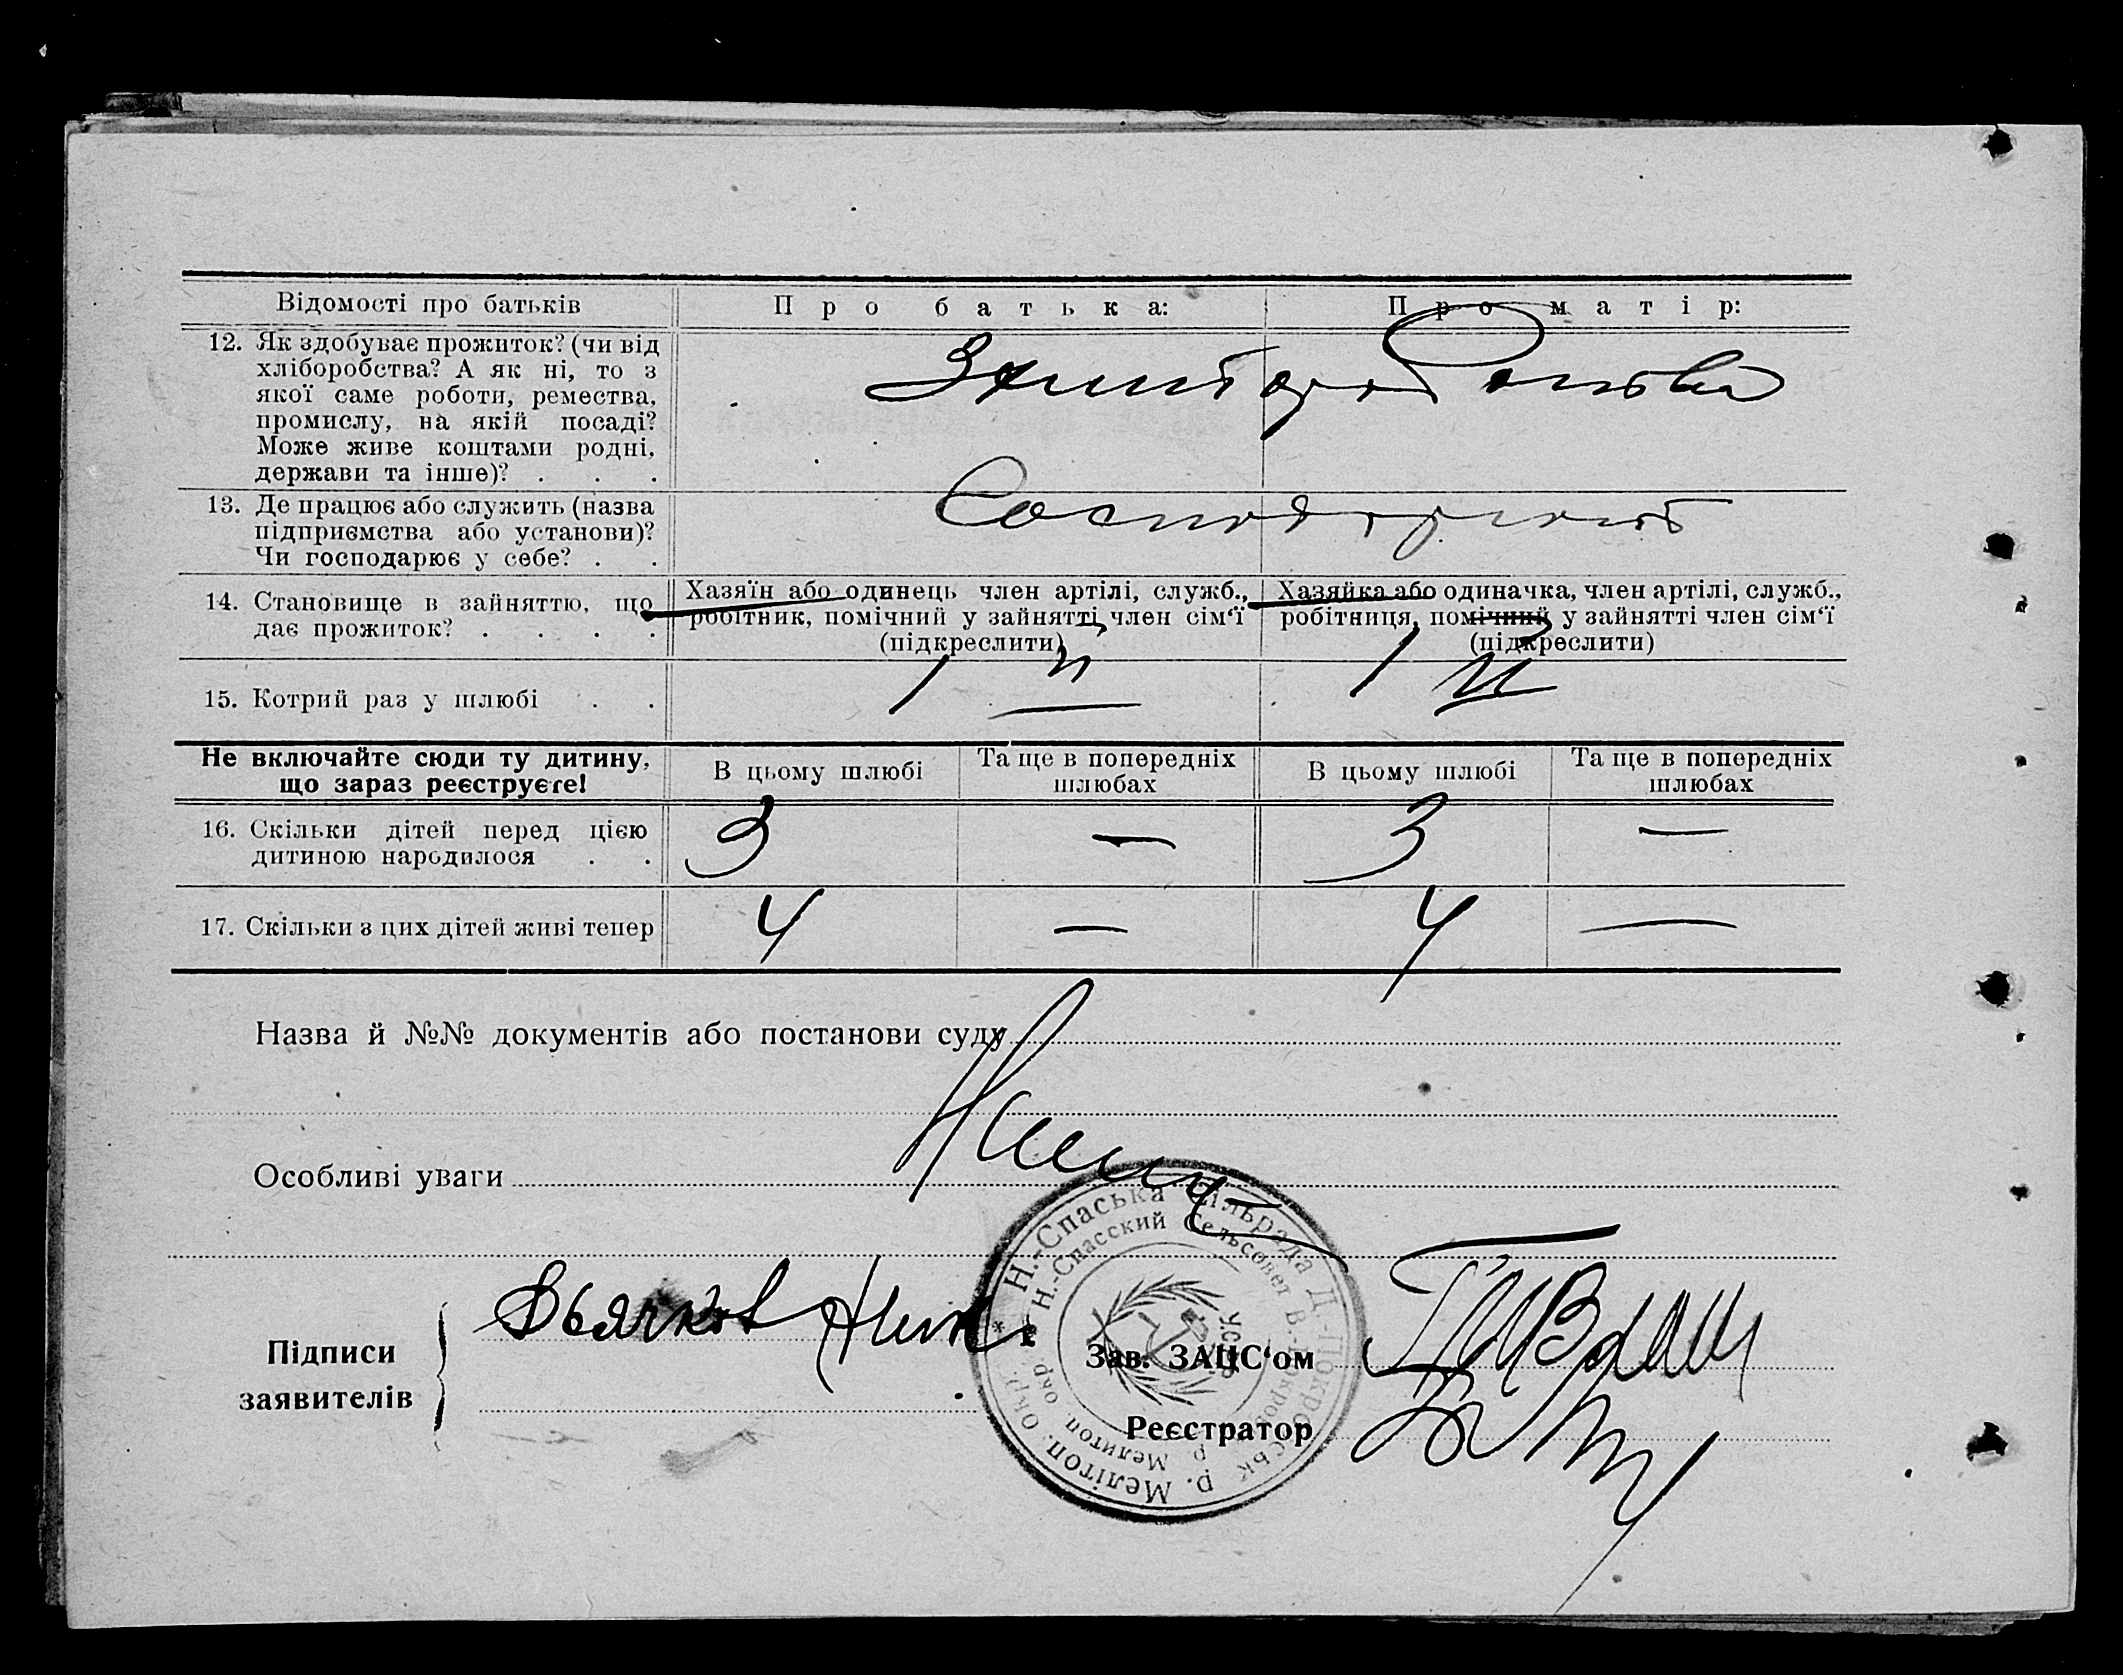 Відомості про батьків
Про батька:
Про матір:
12. Як здобуває прожиток? (чи від
хліборобства? А як ні, то з
якої саме роботи, ремества,
промислу, на якій посаді?
Може живе коштами родні,
держави та інше)? . . .
13. Де працює або служить (назва
підприємства або установи)?
Чи господарює у себе? . .
14. Становище в зайняттю, що
дає прожиток? . . . .
Хазяїн або одинець член артілі, служб.,
робітник, помічний у зайнятті член сім‘ї
(підкреслити)
Хазяйка або одиначка, член артілі, служб.,
робітниця, помічний у зайнятті член сім‘ї
(підкреслити)
15. Котрий раз у шлюбі . .
Не включайте сюди ту дитину,
що зараз реєструєте!
В цьому шлюбі
Та ще в попередніх
шлюбах
В цьому шлюбі
Та ще в попередніх
шлюбах
16. Скільки дітей перед цією
дитиною народилося . .
3 — 3 —
17. Скільки з цих дітей живі тепер
4 — 4 —
Назва й №№ документів або постанови суду
Особливі уваги
Підписи
заявителів
Дьячков
Зав. ЗАЦС‘ом
Реєстратор
Н.-Спаська Сільрада Д-Покровськ р. Мелітоп. Окр.
Н.-Спасский Сельсовет В.-Покров р Мелитоп окр
УСРР